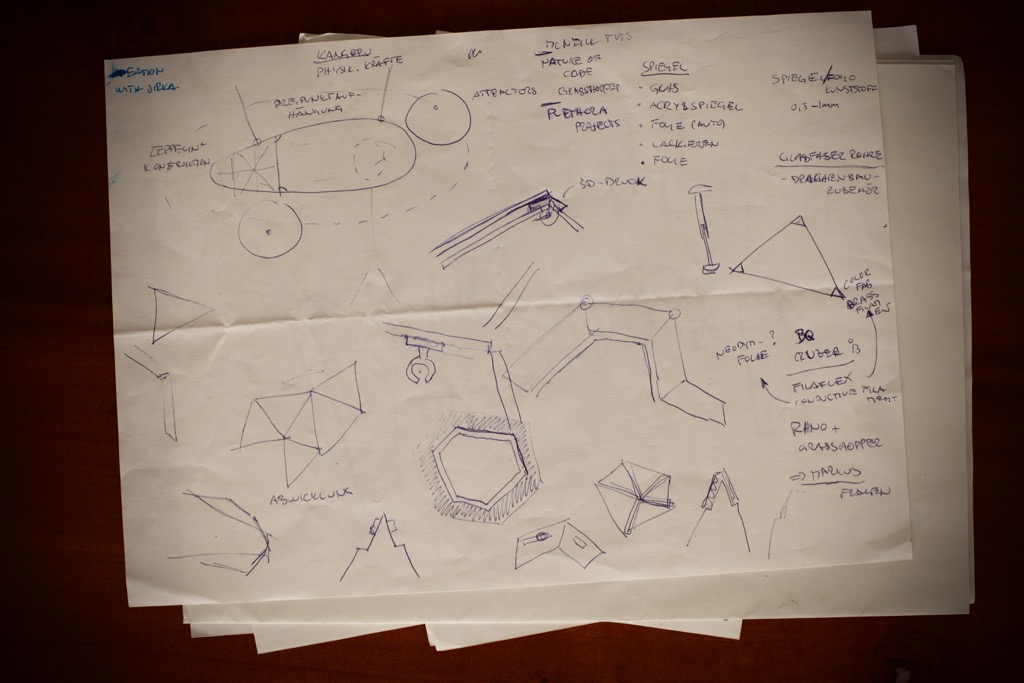 WITH JIRKA
KANGERU
PHYSIK. KRÄFTE
DREIPUNKTAUF-
HÄNGUNG
ZEPPELIN
KONSTRUKTION
ATTRACTORS
MCNEILL TUTS
NATURE OF
CODE
GRASSHOPPER
PLETHORA
PROJECTS
SPIEGEL
- GLAS
- ACRYLSPIEGEL
• FOLIE (AUTO)
• LACKIEREN
• FOLIE
KUNSTSTOFF
0,5-1mm
GLASFASER ROHRE
- DRACHENBAU-
ZUBEHÖR
3D-DRUCK
COLOR
FAB
BRASS
FILAM
ENT
NEODYM- ?
FOLIE
BQ
FILAFLEX
CONDUCTIVE FILA
MENT
RHINO +
GRASSHOPPER
=> MARKUS
FRAGEN
ABWICKLUNG